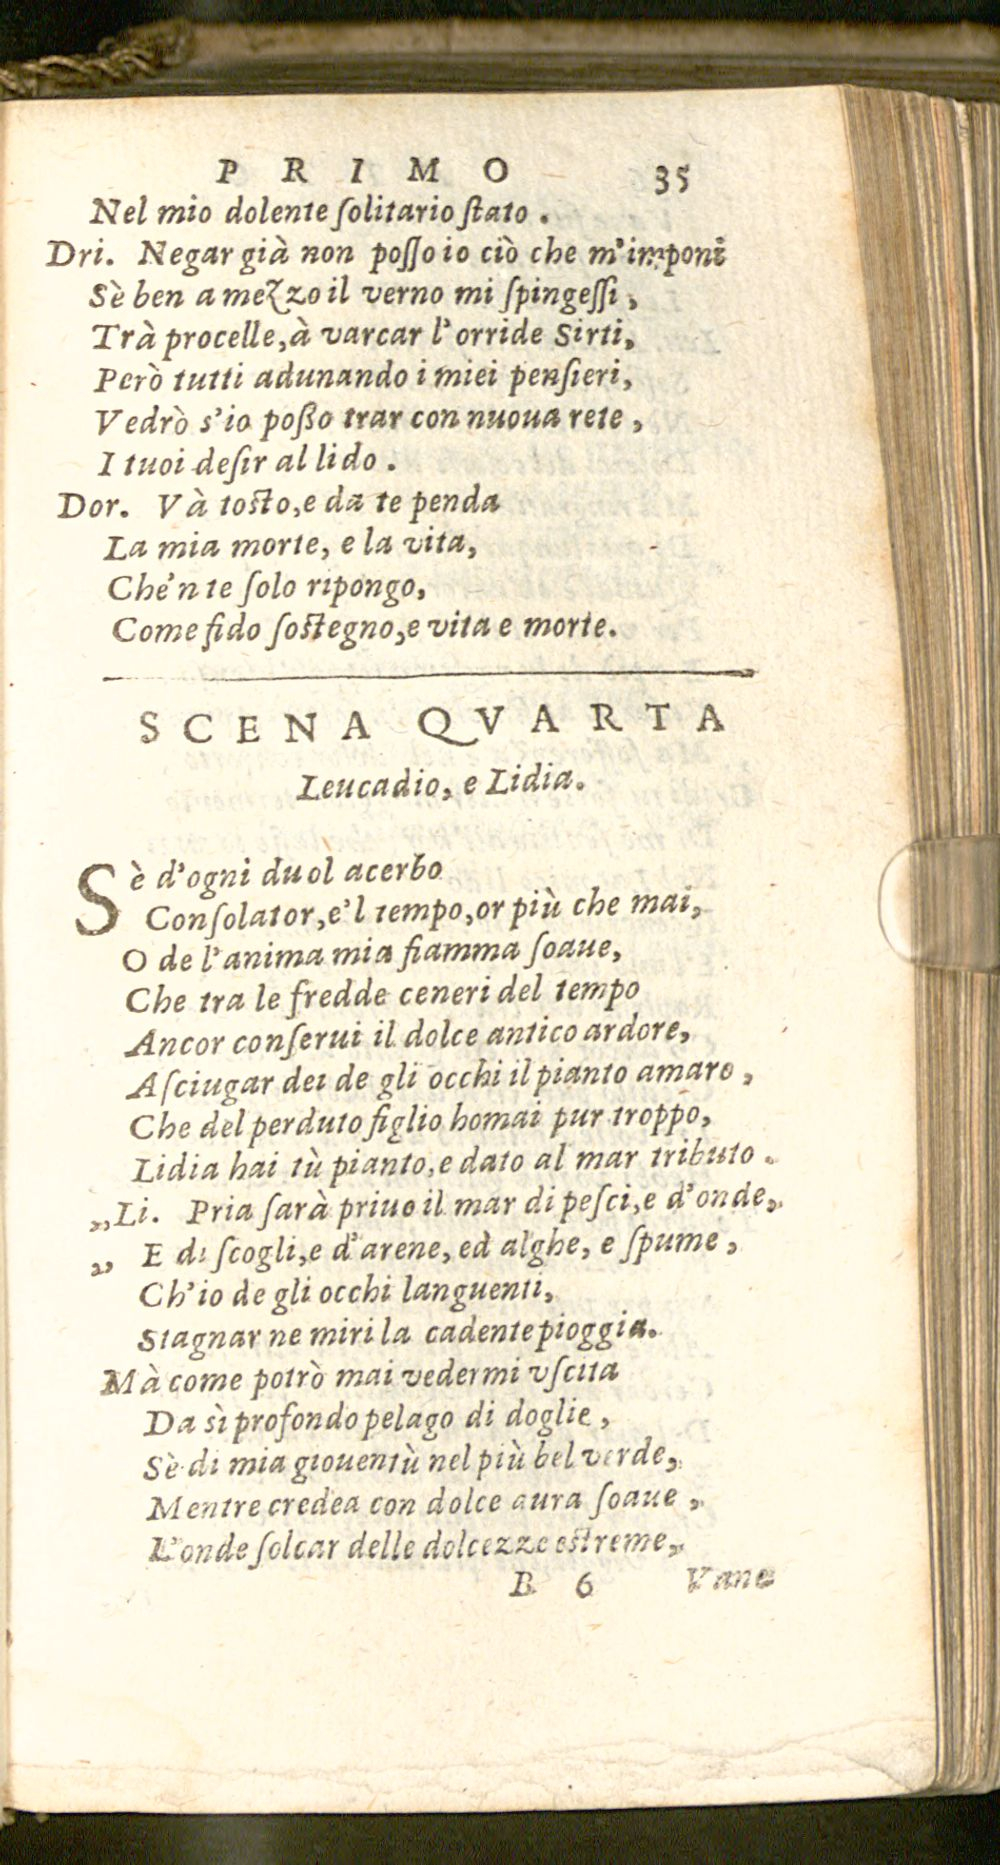 PRIMO 35
Nel mio dolente ſolitario ſtato.
Dri. Negar già non poſſo io ciò che m'imponi
Sè ben a mezzo il verno mi ſpingeſſi,
Trà procelle, à varcar l'orride Sirti,
Però tutti adunando i miei penſieri,
Vedrò s'io poßo trar con nuoua rete,
I tuoi deſir al lido.
Dor. Và toſto, e da te penda
La mia morte, e la vita,
Che'n te ſolo ripongo,
Come fido ſoſtegno, e vita e morte.
SCENA QVARTA
Leucadio, e Lidia.
Sè d'ogni duol acerbo
Conſolator, e'l tempo, or più che mai,
O de l'anima mia fiamma ſoaue,
Che tra le fredde ceneri del tempo
Ancor conſerui il dolce antico ardore,
Aſciugar dei de gli occhi il pianto amaro,
Che del perduto figlio homai pur troppo,
Lidia hai tù pianto, e dato al mar tributo.
„Li. Pria ſarà priuo il mar di peſci, e d'onde,
„ E di ſcogli, e d'arene, ed alghe, e ſpume,
Ch'io de gli occhi languenti,
Stagnar ne miri la cadente pioggia.
Mà come potrò mai vedermi vſcita
Da sì profondo pelago di doglie,
Sè di mia giouentù nel più bel verde,
Mentre credea con dolce aura ſoaue,
L'onde ſolcar delle dolcezze eſtreme,
B 6 Vane